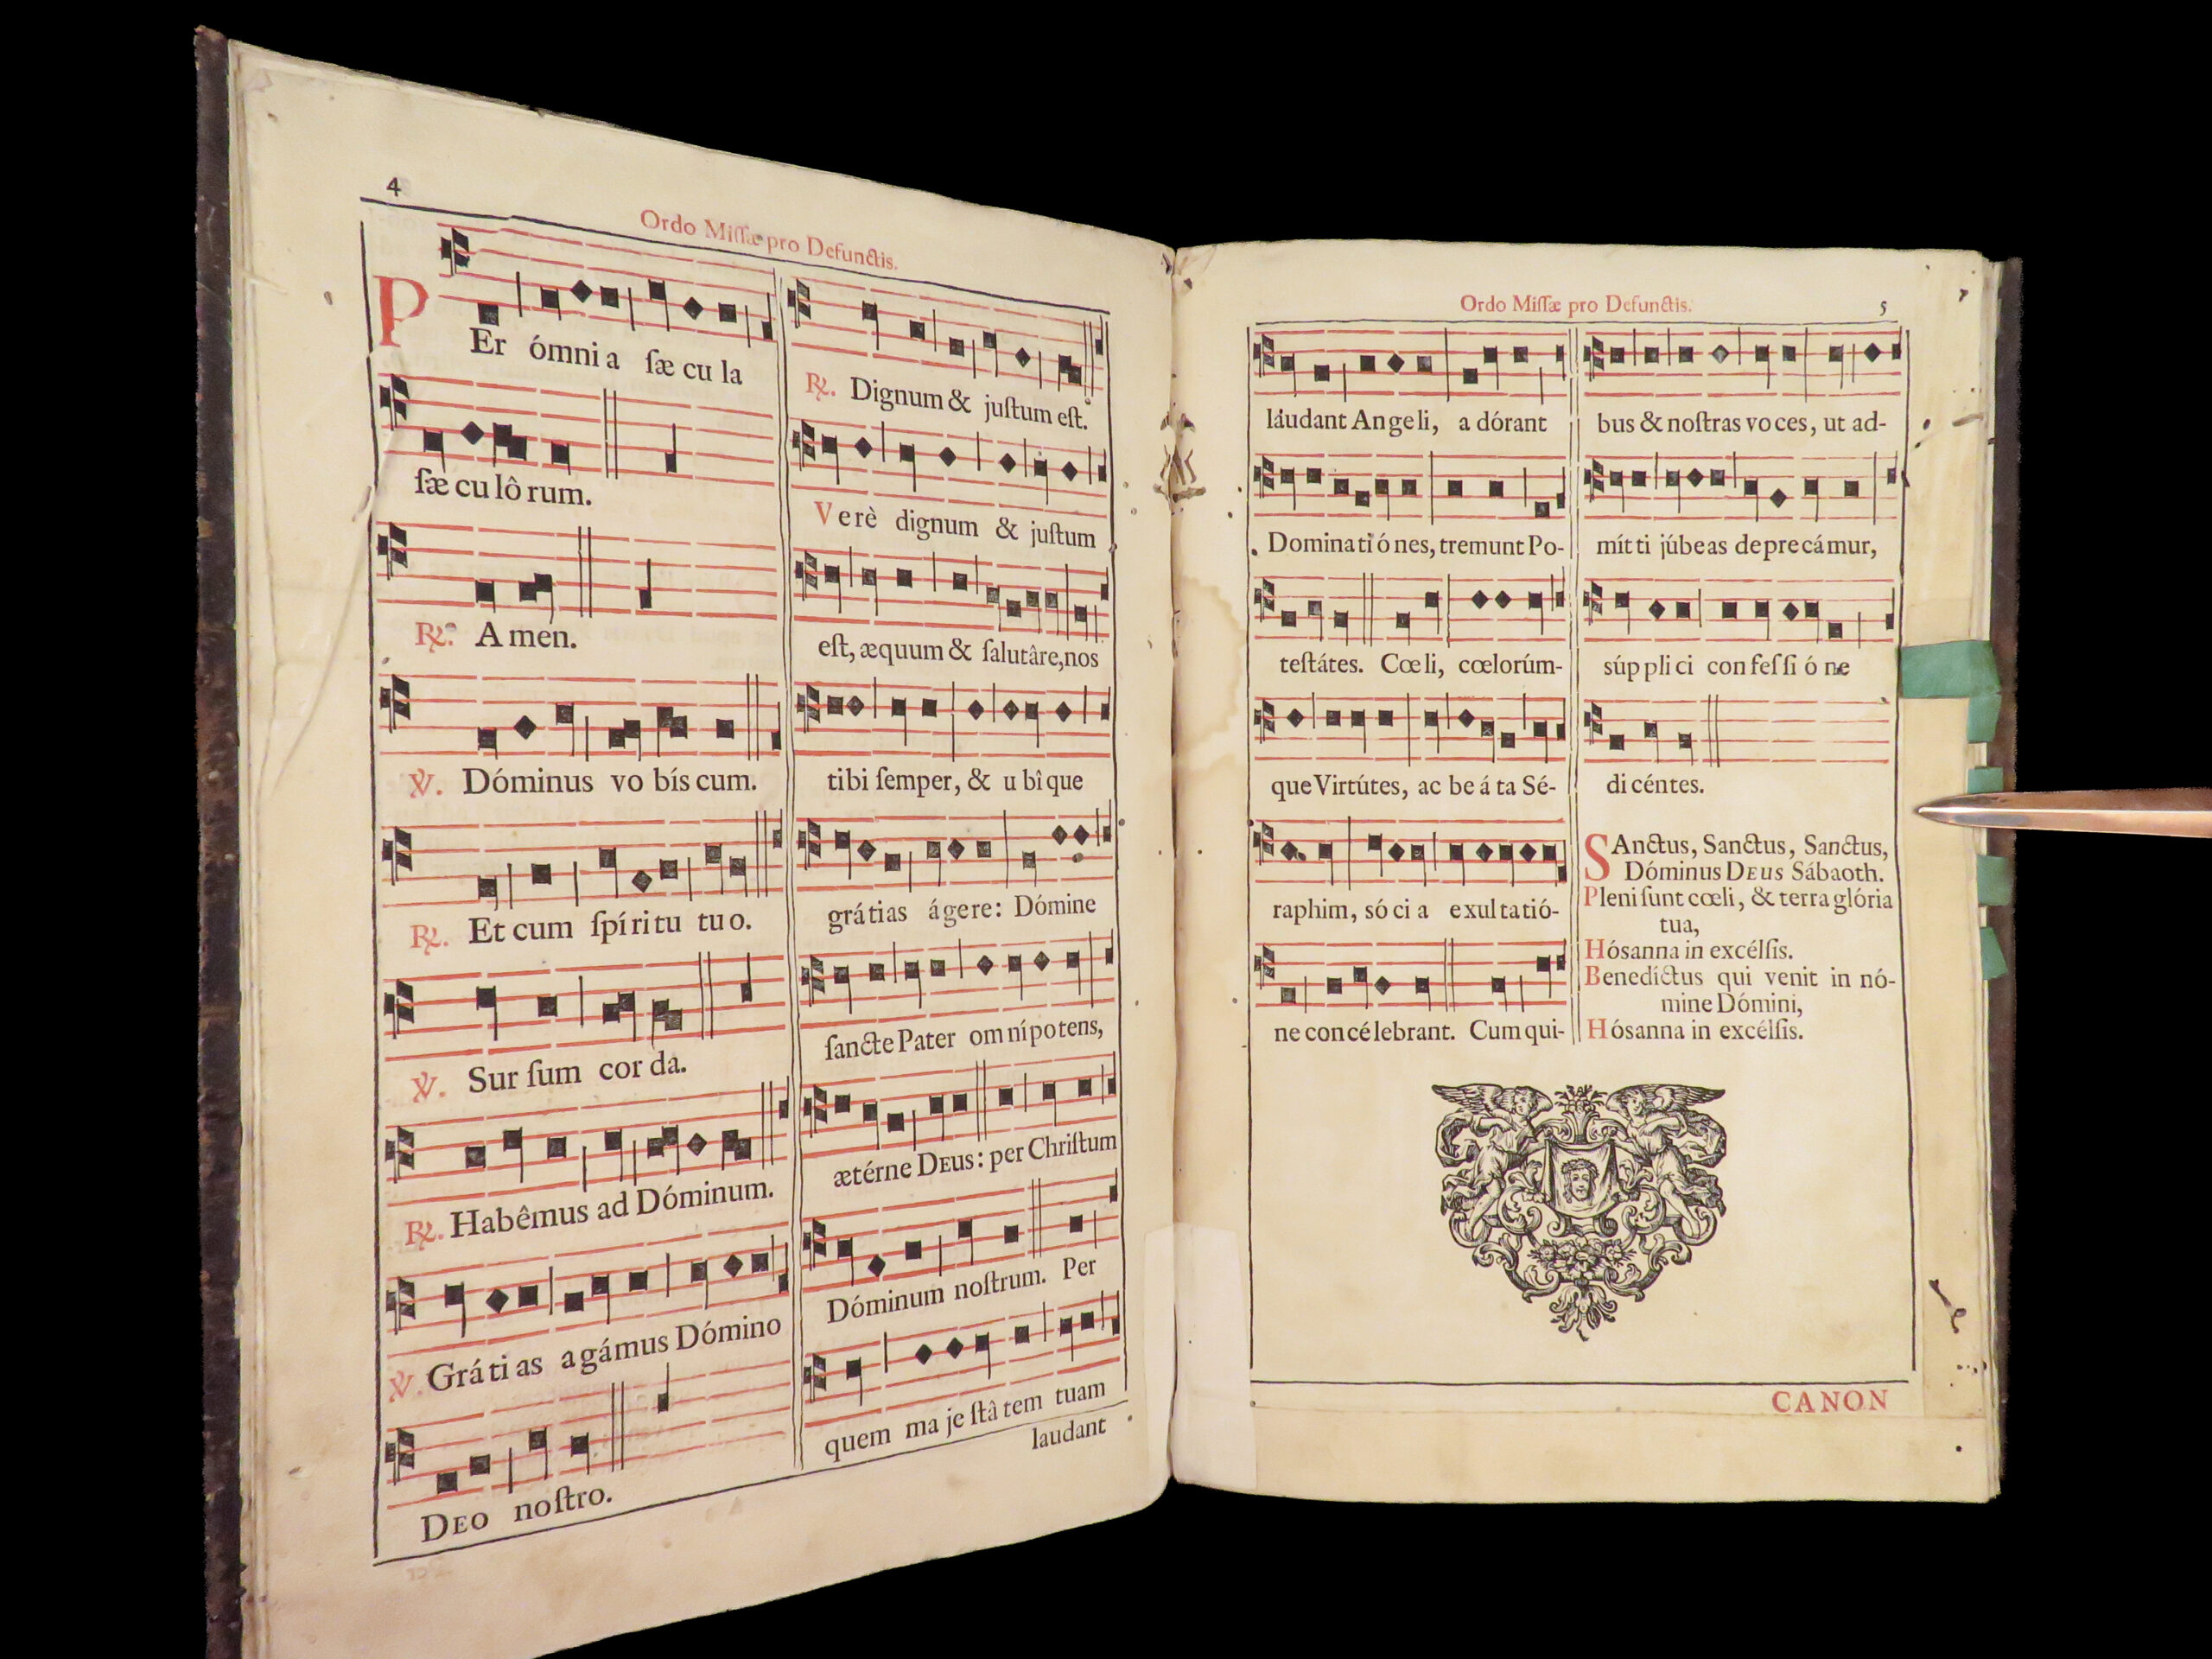 4
Ordo Miſſæ pro Defunctis.
PEr ómni a ſæ cu la
ſæ cu lô rum.
℟. A men.
℣. Dóminus vo bís cum.
℟. Et cum ſpíritu tuo.
℣. Sur ſum cor da.
℟. Habêmus ad Dóminum.
℣. Gráti as agámus Dómino
DEO noſtro.
℟. Dignum & juſtum eſt.
Verè dignum & juſtum
eſt, æquum & ſalutâre, nos
tibi ſemper, & u bî que
grátias ágere: Dómine
ſancte Pater om nípotens,
ætérne DEUS: per Chriſtum
Dóminum noſtrum. Per
quem ma je ſtâ tem tuam
laudant
Ordo Miſſæ pro Defunctis.
5
láudant Angeli, a dórant
Dominatiónes, tremunt Po-
teſtátes. Cœli, cœlorúm-
que Virtútes, ac be á ta Sé-
raphim, só ci a exultatió-
ne concélebrant. Cum qui-
bus & noſtras voces, ut ad-
mít ti júbeas deprecámur,
súp pli ci con feſ ſi ó ne
di céntes.
SAnctus, Sanctus, Sanctus,
Dóminus DEUS Sábaoth.
Pleni ſunt cœli, & terra glória
tua,
Hósanna in excélſis.
Benedíctus qui venit in nó-
mine Dómini,
Hósanna in excélſis.
CANON